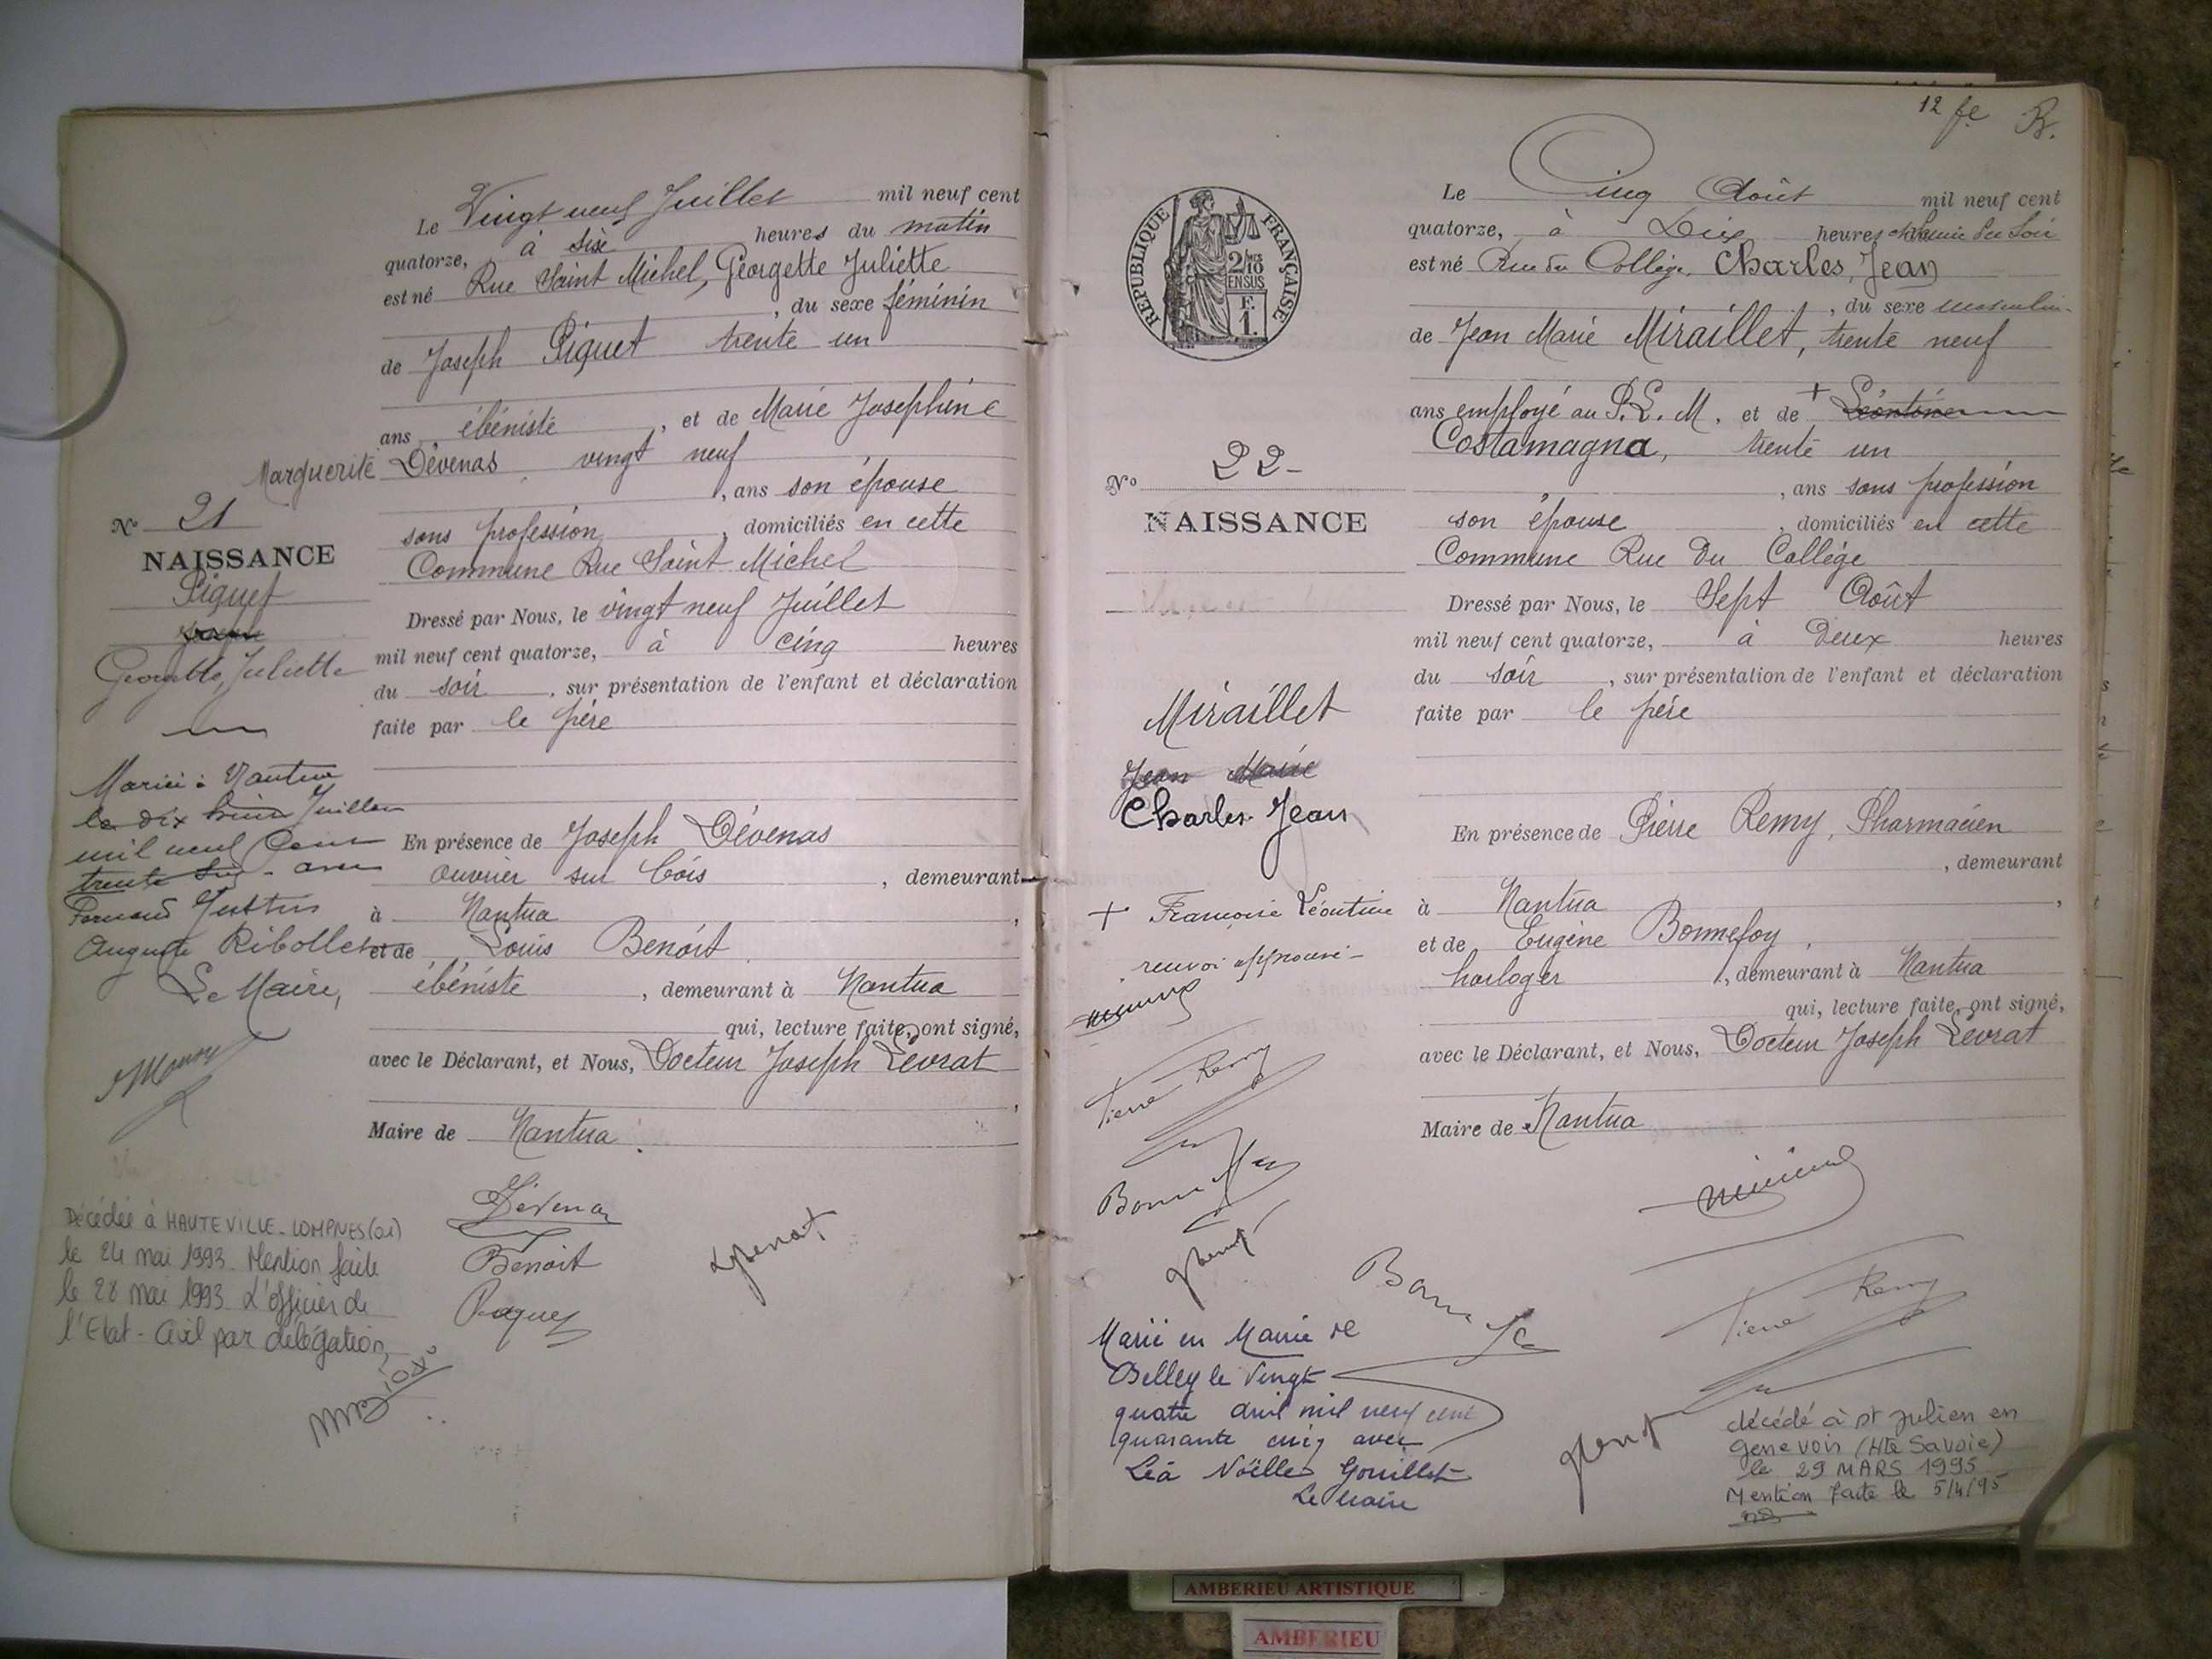 Le Vingt neuf Juillet mil neuf cent
quatorze, à six heures du matin
est né Rue Saint Michel, Georgette Juliette
, du sexe féminin
de Joseph Piguet trente un
ans, ébéniste, et de Marie Joséphine
Marguerite Dévenas vingt neuf
, ans son épouse
sans profession, domiciliés en cette
Commune Rue Saint Michel
Dressé par Nous, le vingt neuf Juillet
mil neuf cent quatorze, à cinq heures
du soir, sur présentation de l'enfant et déclaration
faite par le père
En présence de Joseph Dévenas
ouvrier sur bois, demeurant
à Nantua,
et de Louis Benoit
ébéniste, demeurant à Nantua
qui, lecture faite, ont signé,
avec le Déclarant, et Nous, Docteur Joseph Levrat
Maire de Nantua.
Devenas
Benoit
N° 21
NAISSANCE
Piguet
Joseph
Georgette, Juliette
Marié à Nantua
le dix huit Juillet
mil neuf Cent
trente six avec
Fernand Justin
Auguste Ribollet
Le Maire,
Décédée à HAUTEVILLE-LOMPNES (01)
le 24 mai 1993. Mention faite
le 28 mai 1993. L'officier de
l'Etat-Civil par délégation,
12 fe
Le Cinq Août mil neuf cent
quatorze, à Dix heures du soir
est né Rue du Collège, Charles, Jean
, du sexe masculin
de Jean Marie Miraillet, trente neuf
ans employé au P.L.M. et de + Léontine
Costamagna, trente un
, ans sans profession
son épouse, domiciliés en cette
Commune Rue Du Collège
Dressé par Nous, le Sept Août
mil neuf cent quatorze, à Deux heures
du soir, sur présentation de l'enfant et déclaration
faite par le père
En présence de Pierre Remy, Pharmacien
, demeurant
à Nantua,
et de Eugène Bonnefoy,
horloger, demeurant à Nantua
qui, lecture faite, ont signé,
avec le Déclarant, et Nous, Docteur Joseph Levrat
Maire de Nantua
REPUBLIQUE FRANÇAISE
2/10 EN SUS
F. 1.
N° 22-
NAISSANCE
Miraillet
Jean Marie
Charles Jean
+ Françoise Léontine
renvoi approuvé -
Pierre Remy
Marié en Mairie de
Belley le Vingt
quatre avril mil neuf cent
quarante cinq avec
Léa Noëlle Gouillet
Le Maire
Pierre Remy
décédé à St Julien en
Genevois (Hte Savoie)
le 29 MARS 1995
Mention faite le 5/4/95
AMBERIEU ARTISTIQUE
AMBERIEU